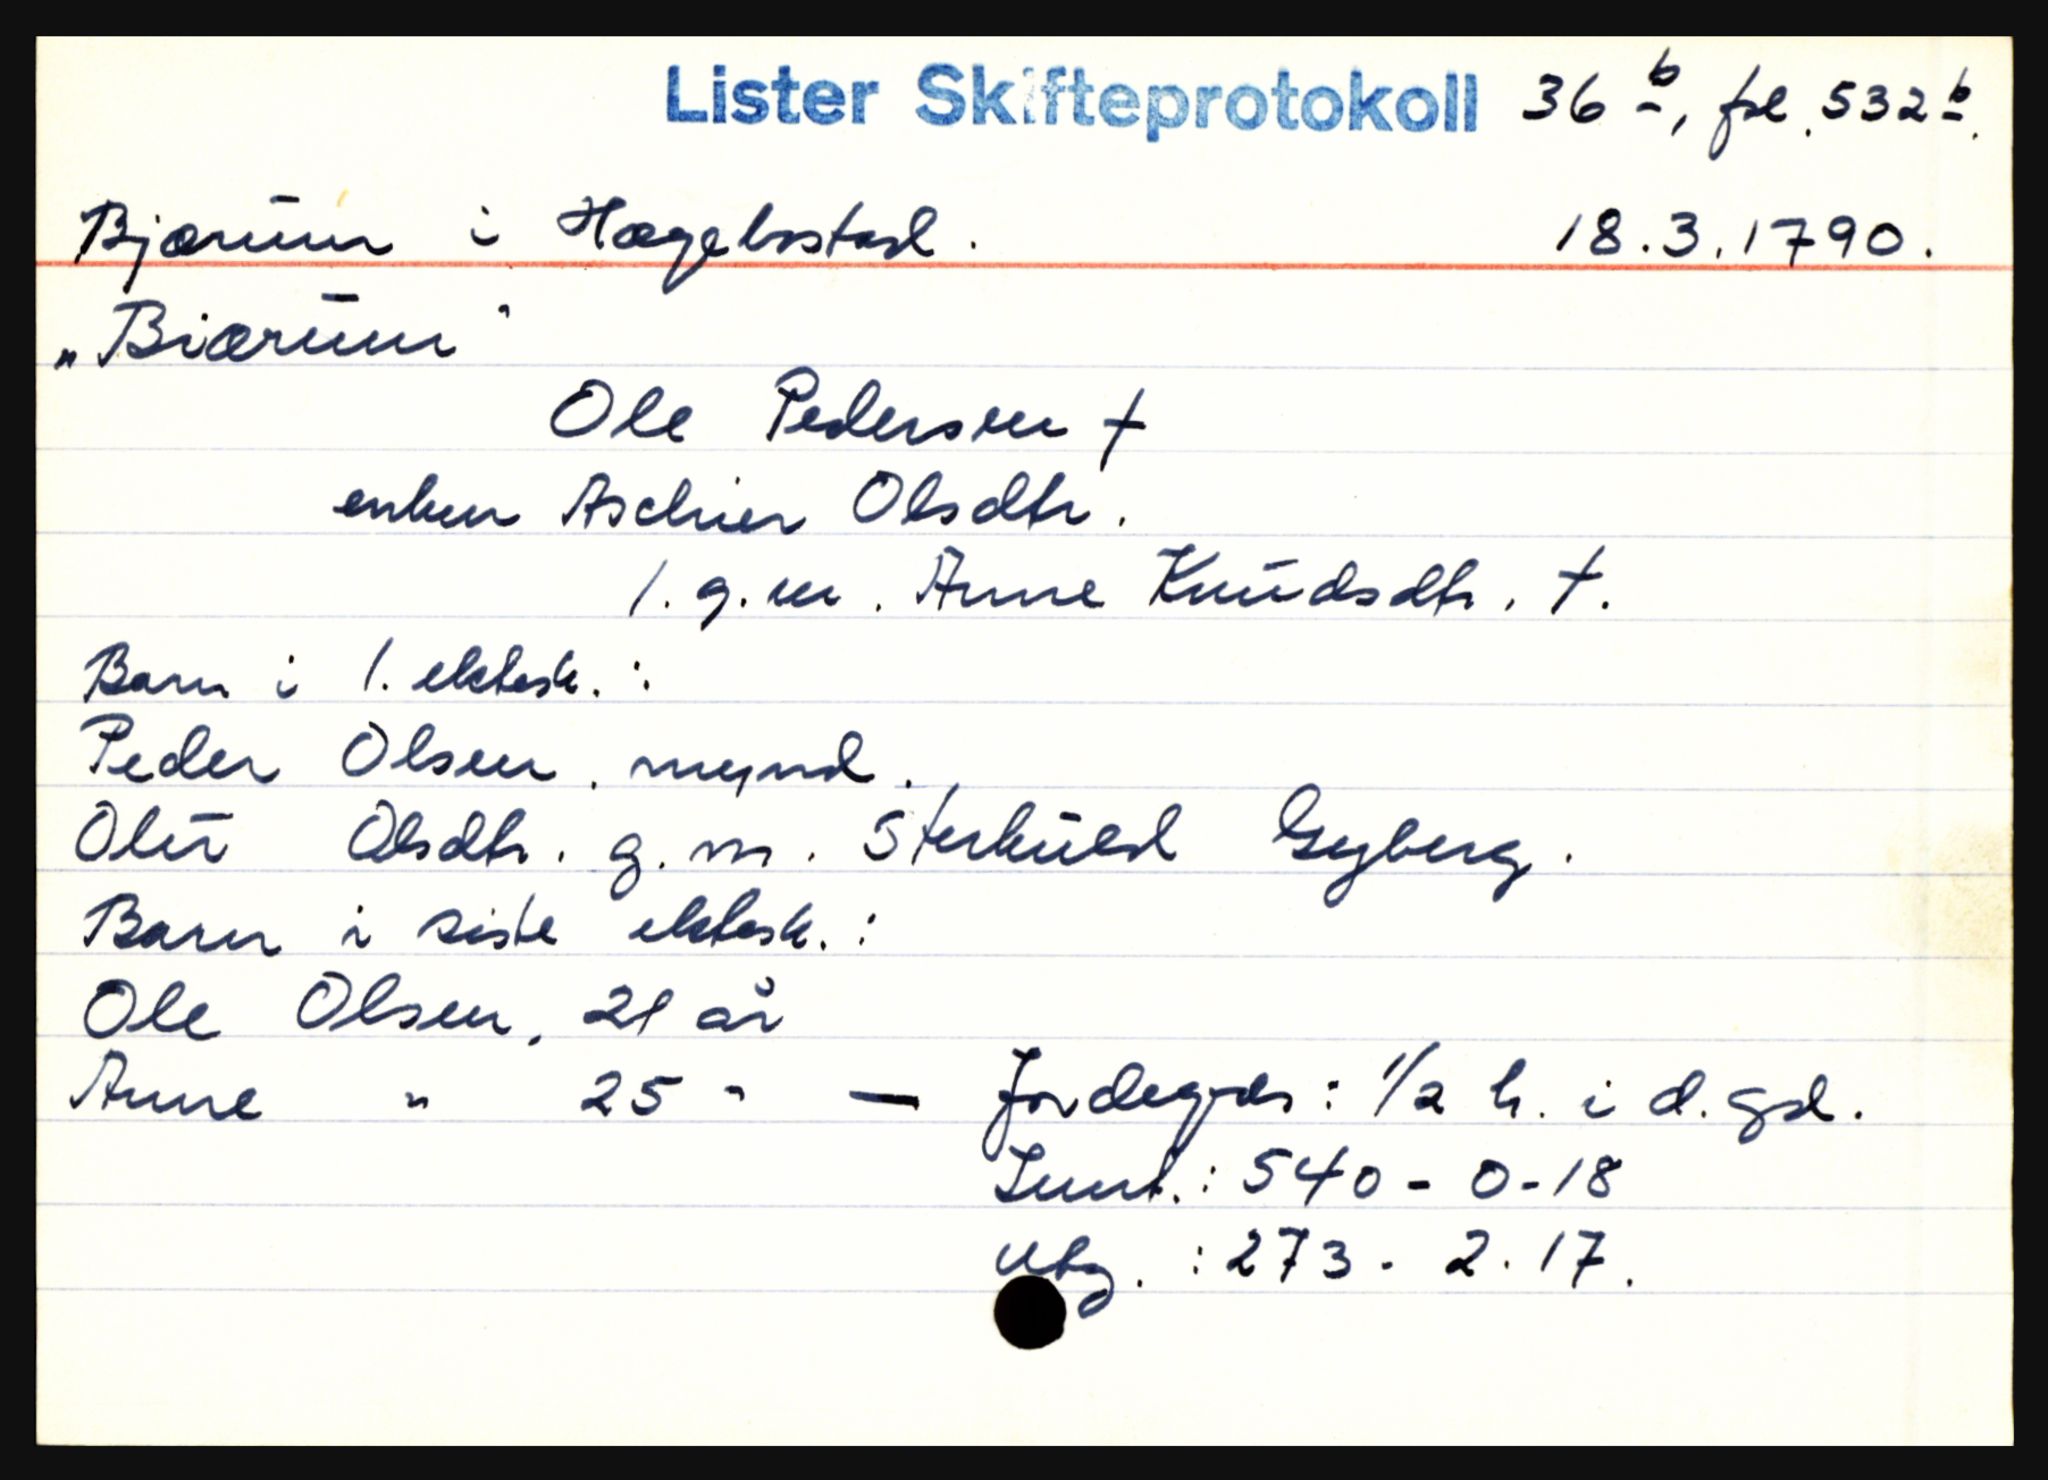 Lister Skifteprotokoll 36 b, fol. 532 b.
Bjærum i Hægebostad. 18.3.1790.
„Biærum"
Ole Pedersen †
enken Aschier Olsdtr.
1. g.m. Anne Knudsdtr. †.
Barn i 1. ektesk. :
Peder Olsen. mynd.
Olu Olsdtr. g. m. Sterkuld Gyberg.
Barn i siste ektesk. :
Ole Olsen, 21 år
Anne " 25 " — Jordegods : 1/2 h. i d. gd.
Innt. : 540 - 0 - 18
Utg. : 273 - 2 - 17.